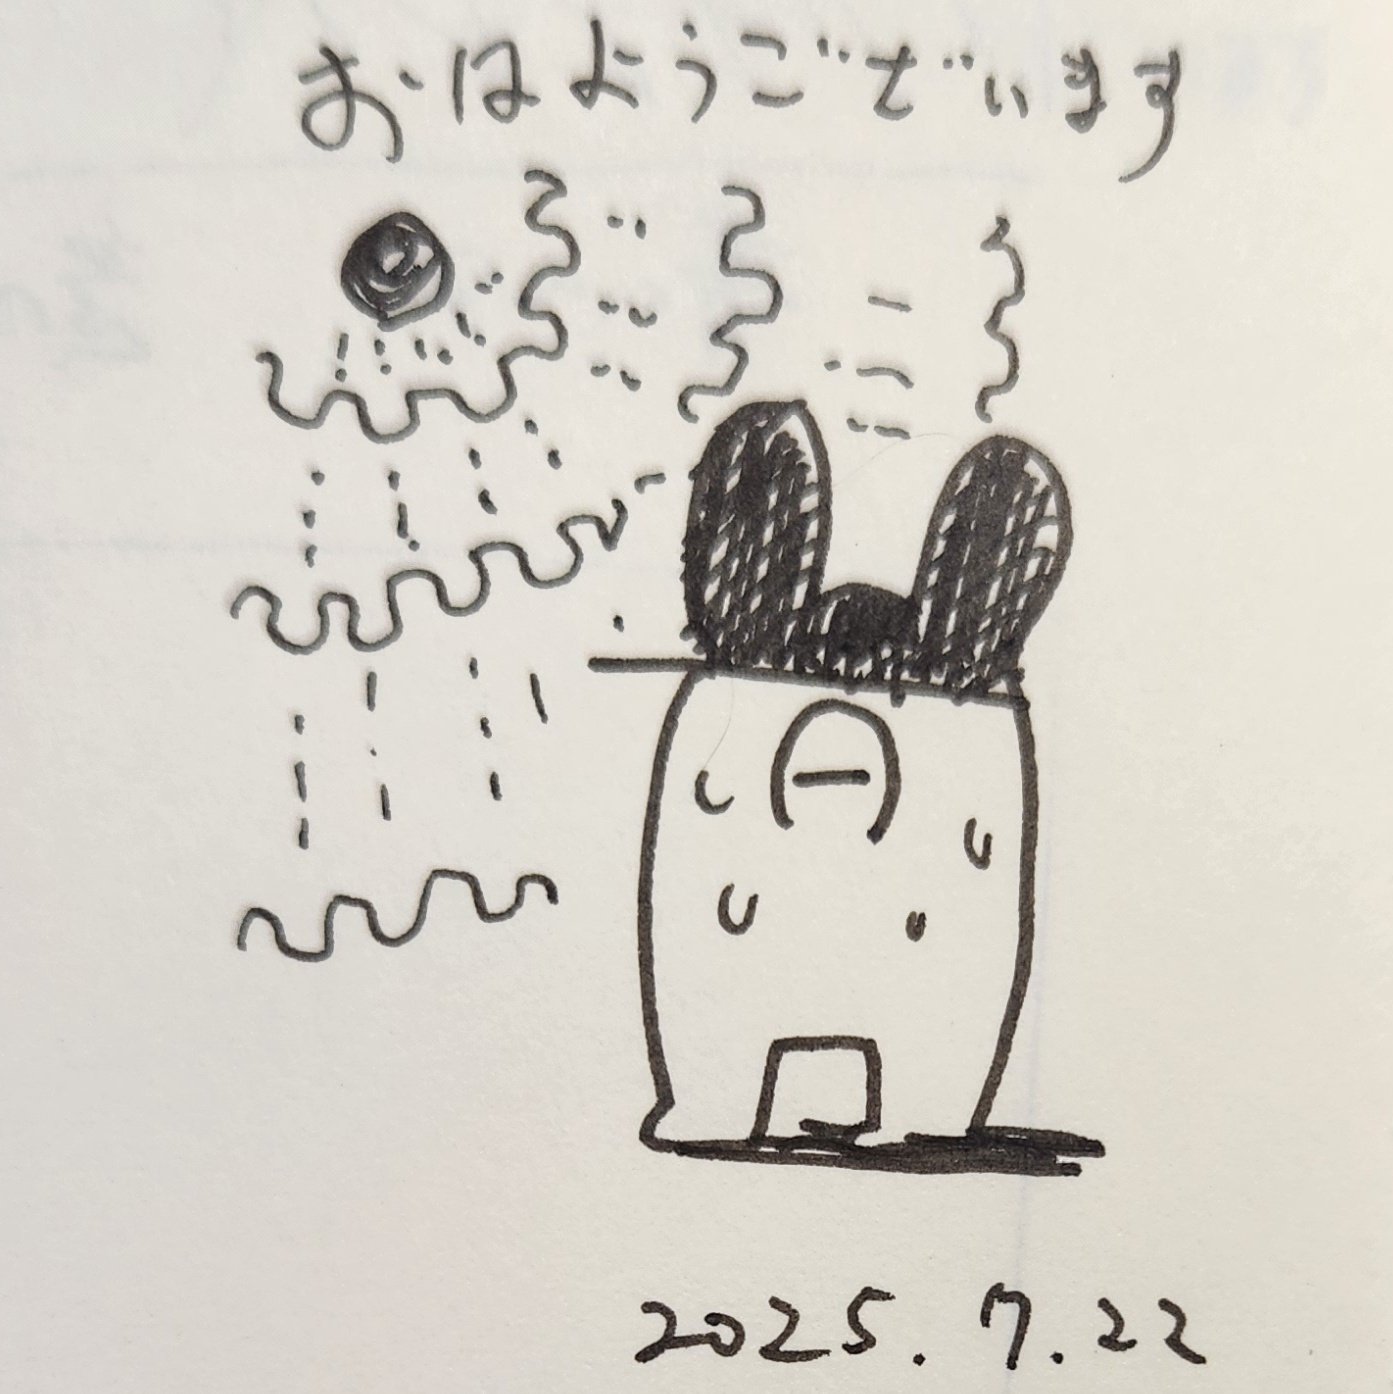 おはようございます
2025.7.22